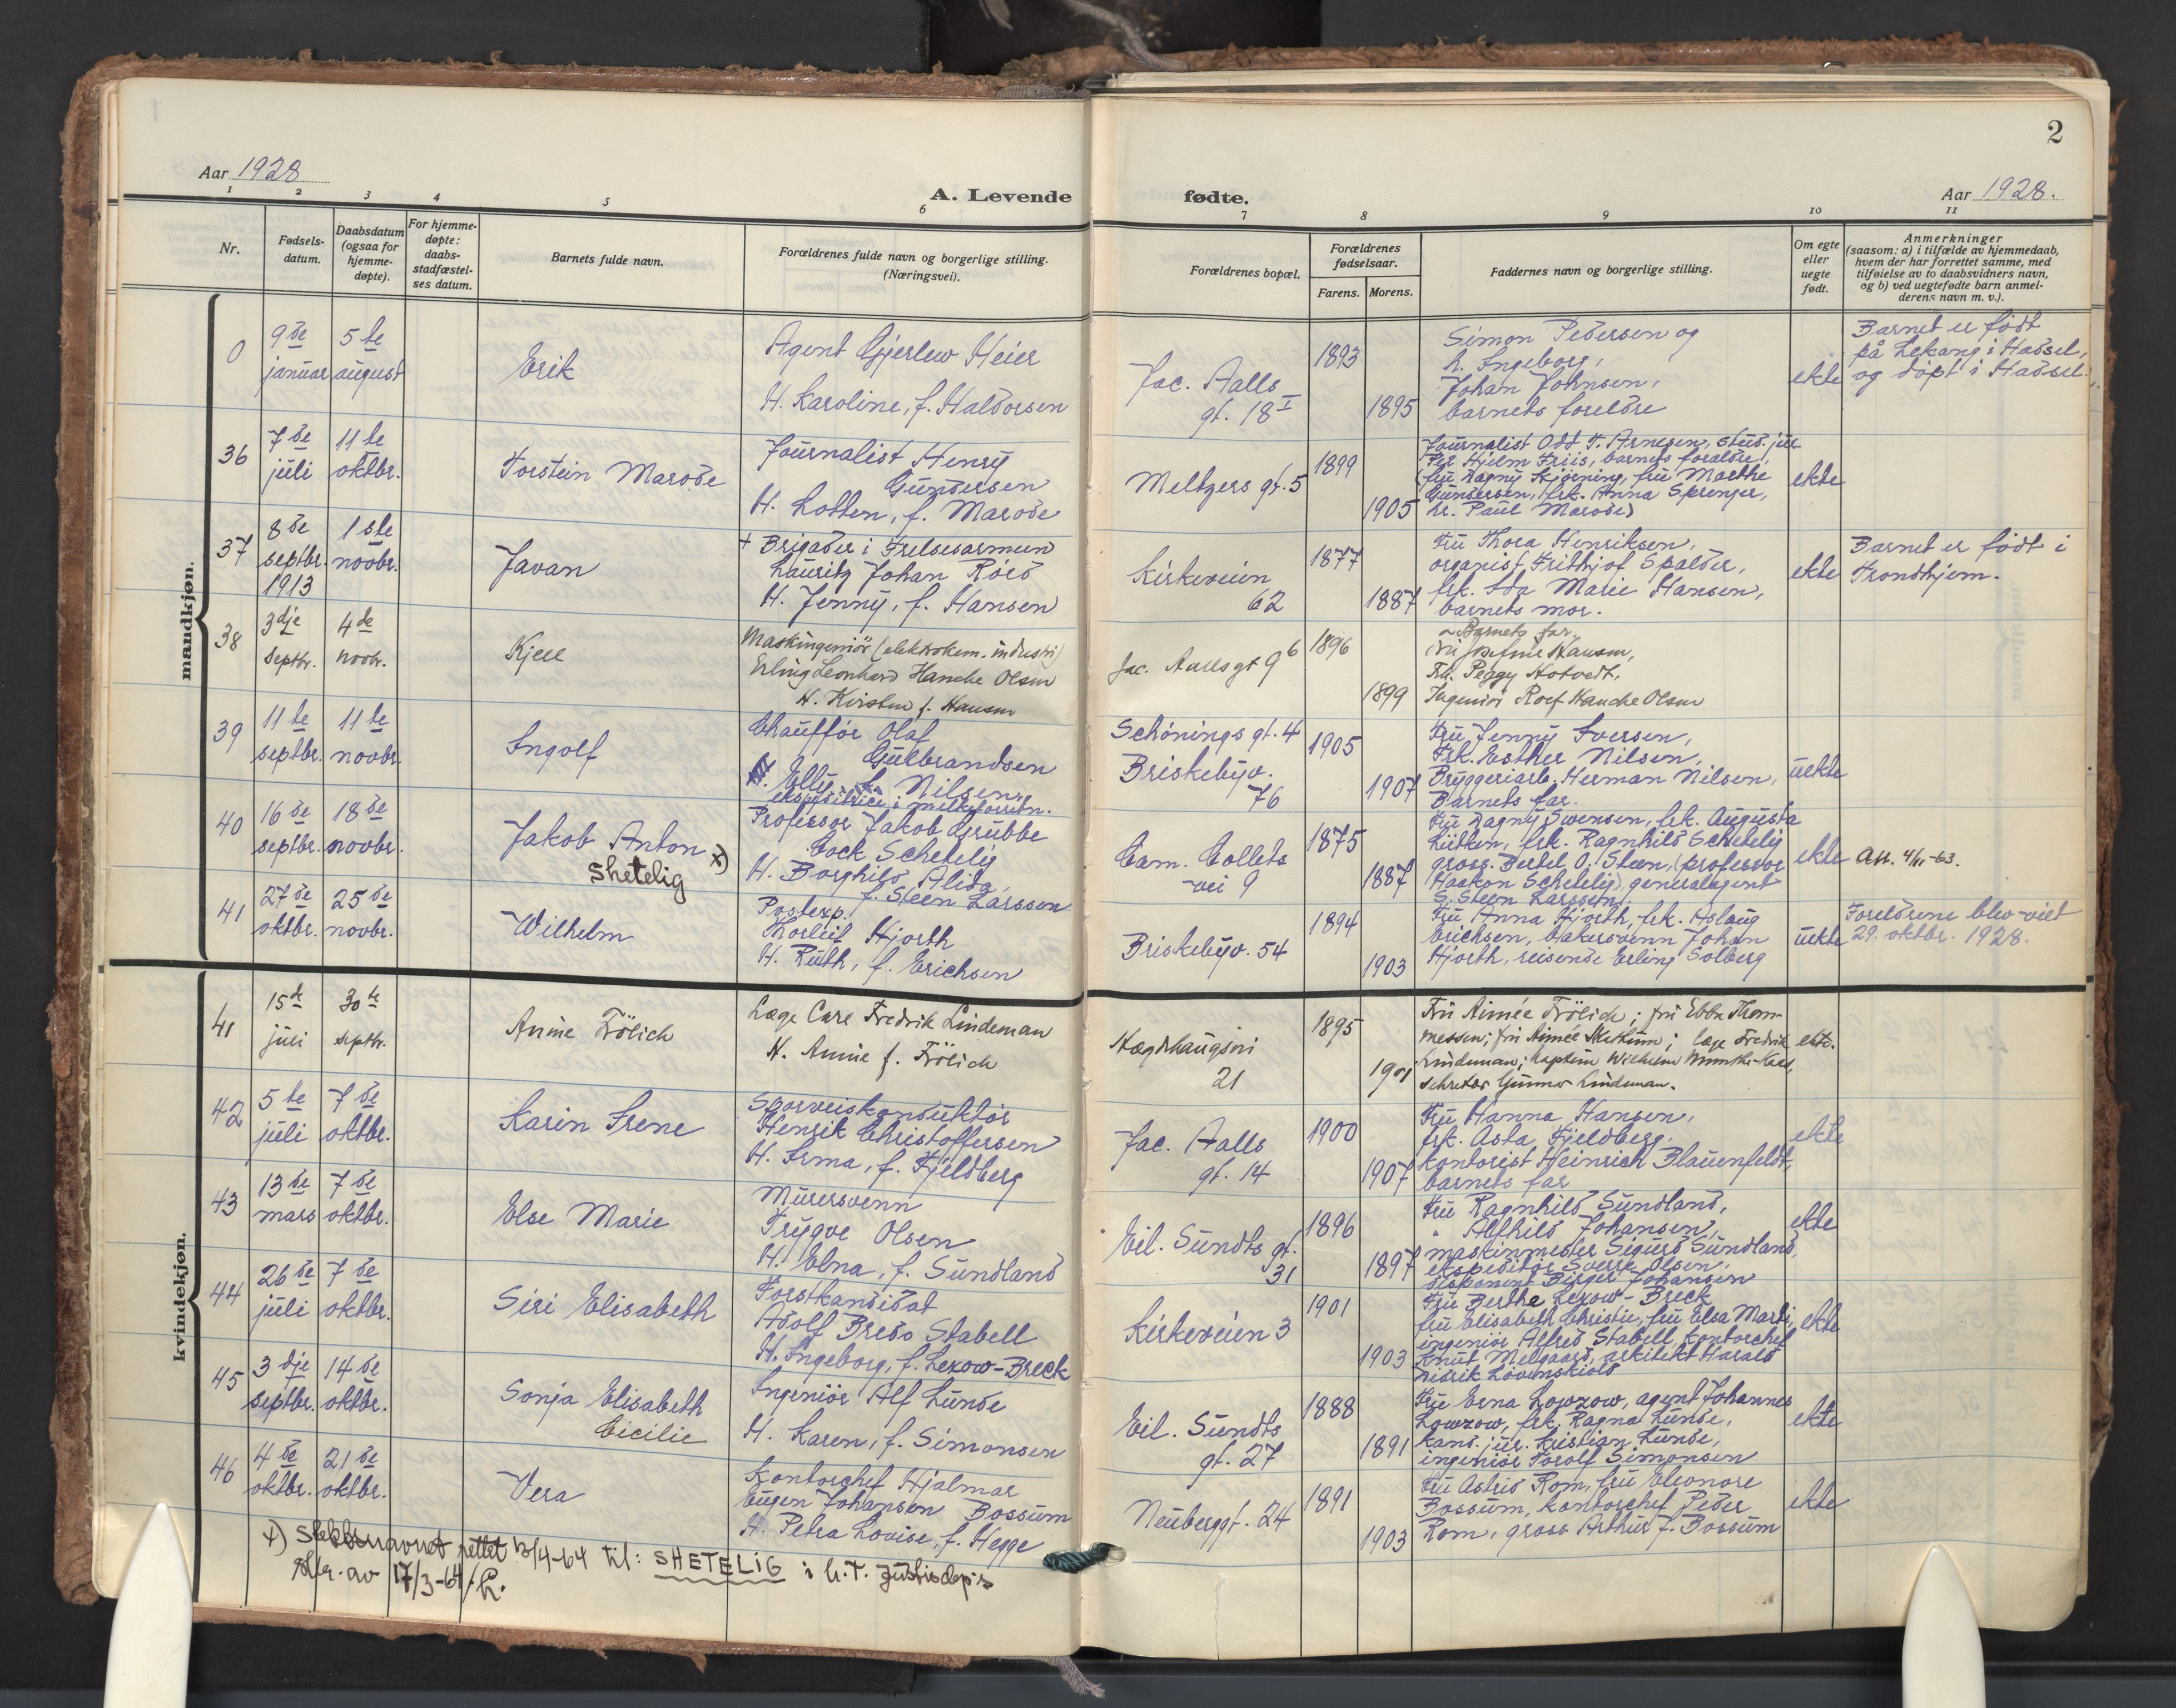 2
Aar 1928
A. Levende
fødte.
Aar 1928.
1 2 3 4 5 6 7 8 9 10 11
Nr.
Fødsels-
datum.
Daabsdatum
(ogsaa for
hjemme-
døpte).
For hjemme-
døpte:
daabs-
stadfæstel-
ses datum.
Barnets fulde navn.
Forældrenes fulde navn og borgerlige stilling.
(Næringsvei).
Forældrenes bopæl.
Forældrenes
fødselsaar.
Farens. Morens.
Faddernes navn og borgerlige stilling.
Om egte
eller
uegte
født.
Anmerkninger
(saasom: a) i tilfælde av hjemmedaab,
hvem der har forrettet samme, med
tilføielse av to daabsvidners navn,
og b) ved uegtefødte barn anmel-
derens navn m. v.).
mandkjøn.
0
9de
januar
5te
august
Erik
Agent Gjerlew Heier
H. Karoline, f. Haldorsen
Jac. Aalls
gt. 18 I
1893
1895
Simon Pedersen og
h. Ingeborg,
Johan Johnsen,
barnets foreldre
ekte
Barnet er født
på Lekang i Hadsel,
og døpt i Hadsel.
36
7de
juli
11te
oktbr.
Torstein Marode
Journalist Henry
Gundersen
H. Lotten, f. Marode
Meltzers gt. 5
1899
1905
Journalist Odd T. Arnesen, stud. jur.
Per Hjelm Friis, barnets foreldre,
(fru Dagny Skjønning, fru Marthe
Gundersen, frk. Anna Sprenger,
hr. Paul Marode)
ekte
37
8de
septbr.
1913
1ste
novbr.
Javan
+ Brigader i Frelsesarmeen
Lauritz Johan Rörd
H. Jenny, f. Hansen
Kirkeveien
62
1877
1887
Fru Thora Henriksen,
organist Frithjof Spalder,
frk. Ida Marie Hansen,
barnets mor.
ekte
Barnet er født i
Trondhjem.
38
3dje
septbr.
4de
novbr.
Kjell
Maskiningeniör (elektrokem. industri)
Erling Leonhard Hanche Olsen
H. Kirsten f. Hansen
Jac. Aallsgt 9 b
1896
1899
Barnets far.
Fru Josefine Hansen,
Fru. Peggy Hotvedt,
Ingeniör Rolf Hanche Olsen
39
11te
septbr.
11te
novbr.
Ingolf
Chauffør Olaf
Gulbrandsen
Elly, f. Nilsen,
ekspeditrice i melkeforretn.
Schönings gt. 4
Briskebyv.
76
1905
1907
Fru Jenny Iversen,
Frk. Esther Nilsen,
Bryggeriarb. Herman Nilsen,
Barnets far.
uekte
40
16de
septbr.
18de
novbr.
Jakob Anton x)
Shetelig
Professor Jakob Grubbe
Cock Schetelig
H. Borghild Alida,
f. Steen Larssen
Cam. Colletts
vei 9
1875
1887
Fru Dagny Swensen, frk. Augusta
Lütken, frk. Ragnhild Schetelig
gross. Bertel O. Steen, (professor
Haakon Schetelig), generalagent
S. Steen Larssen
ekte
Att. 4/11-63.
41
27de
oktbr.
25de
novbr.
Wilhelm
Postexp.
Thorleif Hjorth
H. Ruth, f. Erichsen
Briskebyv. 54
1894
1903
Fru Anna Hjorth, frk. Aslaug
Erichsen, bakersvenn Johan
Hjorth, reisende Erling Solberg
uekte
Foreldrene blev viet
29. oktbr. 1928.
kvindekjøn.
41
15de
juli
30te
septbr.
Annie Frölich
Læge Carl Fredrik Lindeman
H. Annie f. Frölich
Hægdehaugsvei
21
1895
1901
Fru Aimée Frölich; fru Ebba Thom-
messen; fru Aimée Mathiesen; læge Fredrik
Lindeman; kaptein Wilhelm Munthe-Kaas,
sekretær Gunnar Lindeman.
ekte.
42
5te
juli
7de
oktbr.
Karin Irene
Sporveiskonduktør
Henrik Christoffersen
H. Irma, f. Fjeldberg
Jac. Aalls
gt. 14
1900
1907
Fru Hanna Hansen,
frk. Asta Fjeldberg,
kontorist Heinrich Blauenfeldt,
barnets far
ekte
43
13de
mars
7de
oktbr.
Else Marie
Murersvenn
Trygve Olsen
H. Edna, f. Sundland
Eil. Sundts gt.
31
1896
1897
Fru Ragnhild Sundland,
" Alfhild Johansen,
maskinmester Sigurd Sundland,
ekspeditør Sverre Olsen,
disponent Birger Johansen
ekte
44
26de
juli
7de
oktbr.
Siri Elisabeth
Forstkandidat
Adolf Bredo Stabell
H. Ingeborg, f. Lexow-Breck
Kirkeveien 3
1901
1903
Fru Berthe Lexow-Breck
fru Elisabeth Christie, fru Elsa Marti,
ingeniør Alfred Stabell, kontorchef
Knut Melgaard, arkitekt Harald
Didrik Løvenskiold
ekte
45
3dje
septbr.
14de
oktbr.
Sonja Elisabeth
Cicilie
Ingeniör Alf Lunde
H. Karen, f. Simonsen
Eil. Sundts
gt. 27
1888
1891
Fru Erna Lowzow, agent Johannes
Lowzow, frk. Ragna Lunde,
kand. jur. Kristian Lunde,
ingeniør Torolf Simonsen
ekte
46
4de
oktbr.
21de
oktbr.
Vera
Kontorchef Hjalmar
Eugen Johansen Bossum
H. Petra Lovise, f. Hegge
Neuberggt. 24
1891
1903
Fru Astrid Rom, fru Eleonore
Bossum, kontorchef Peder
Rom, gross Arthur f. Bossum
ekte
x) Slektsnavnet rettet 13/4-64 til: SHETELIG i h.t. Justisdep's
skr. av 17/3-64/ L.